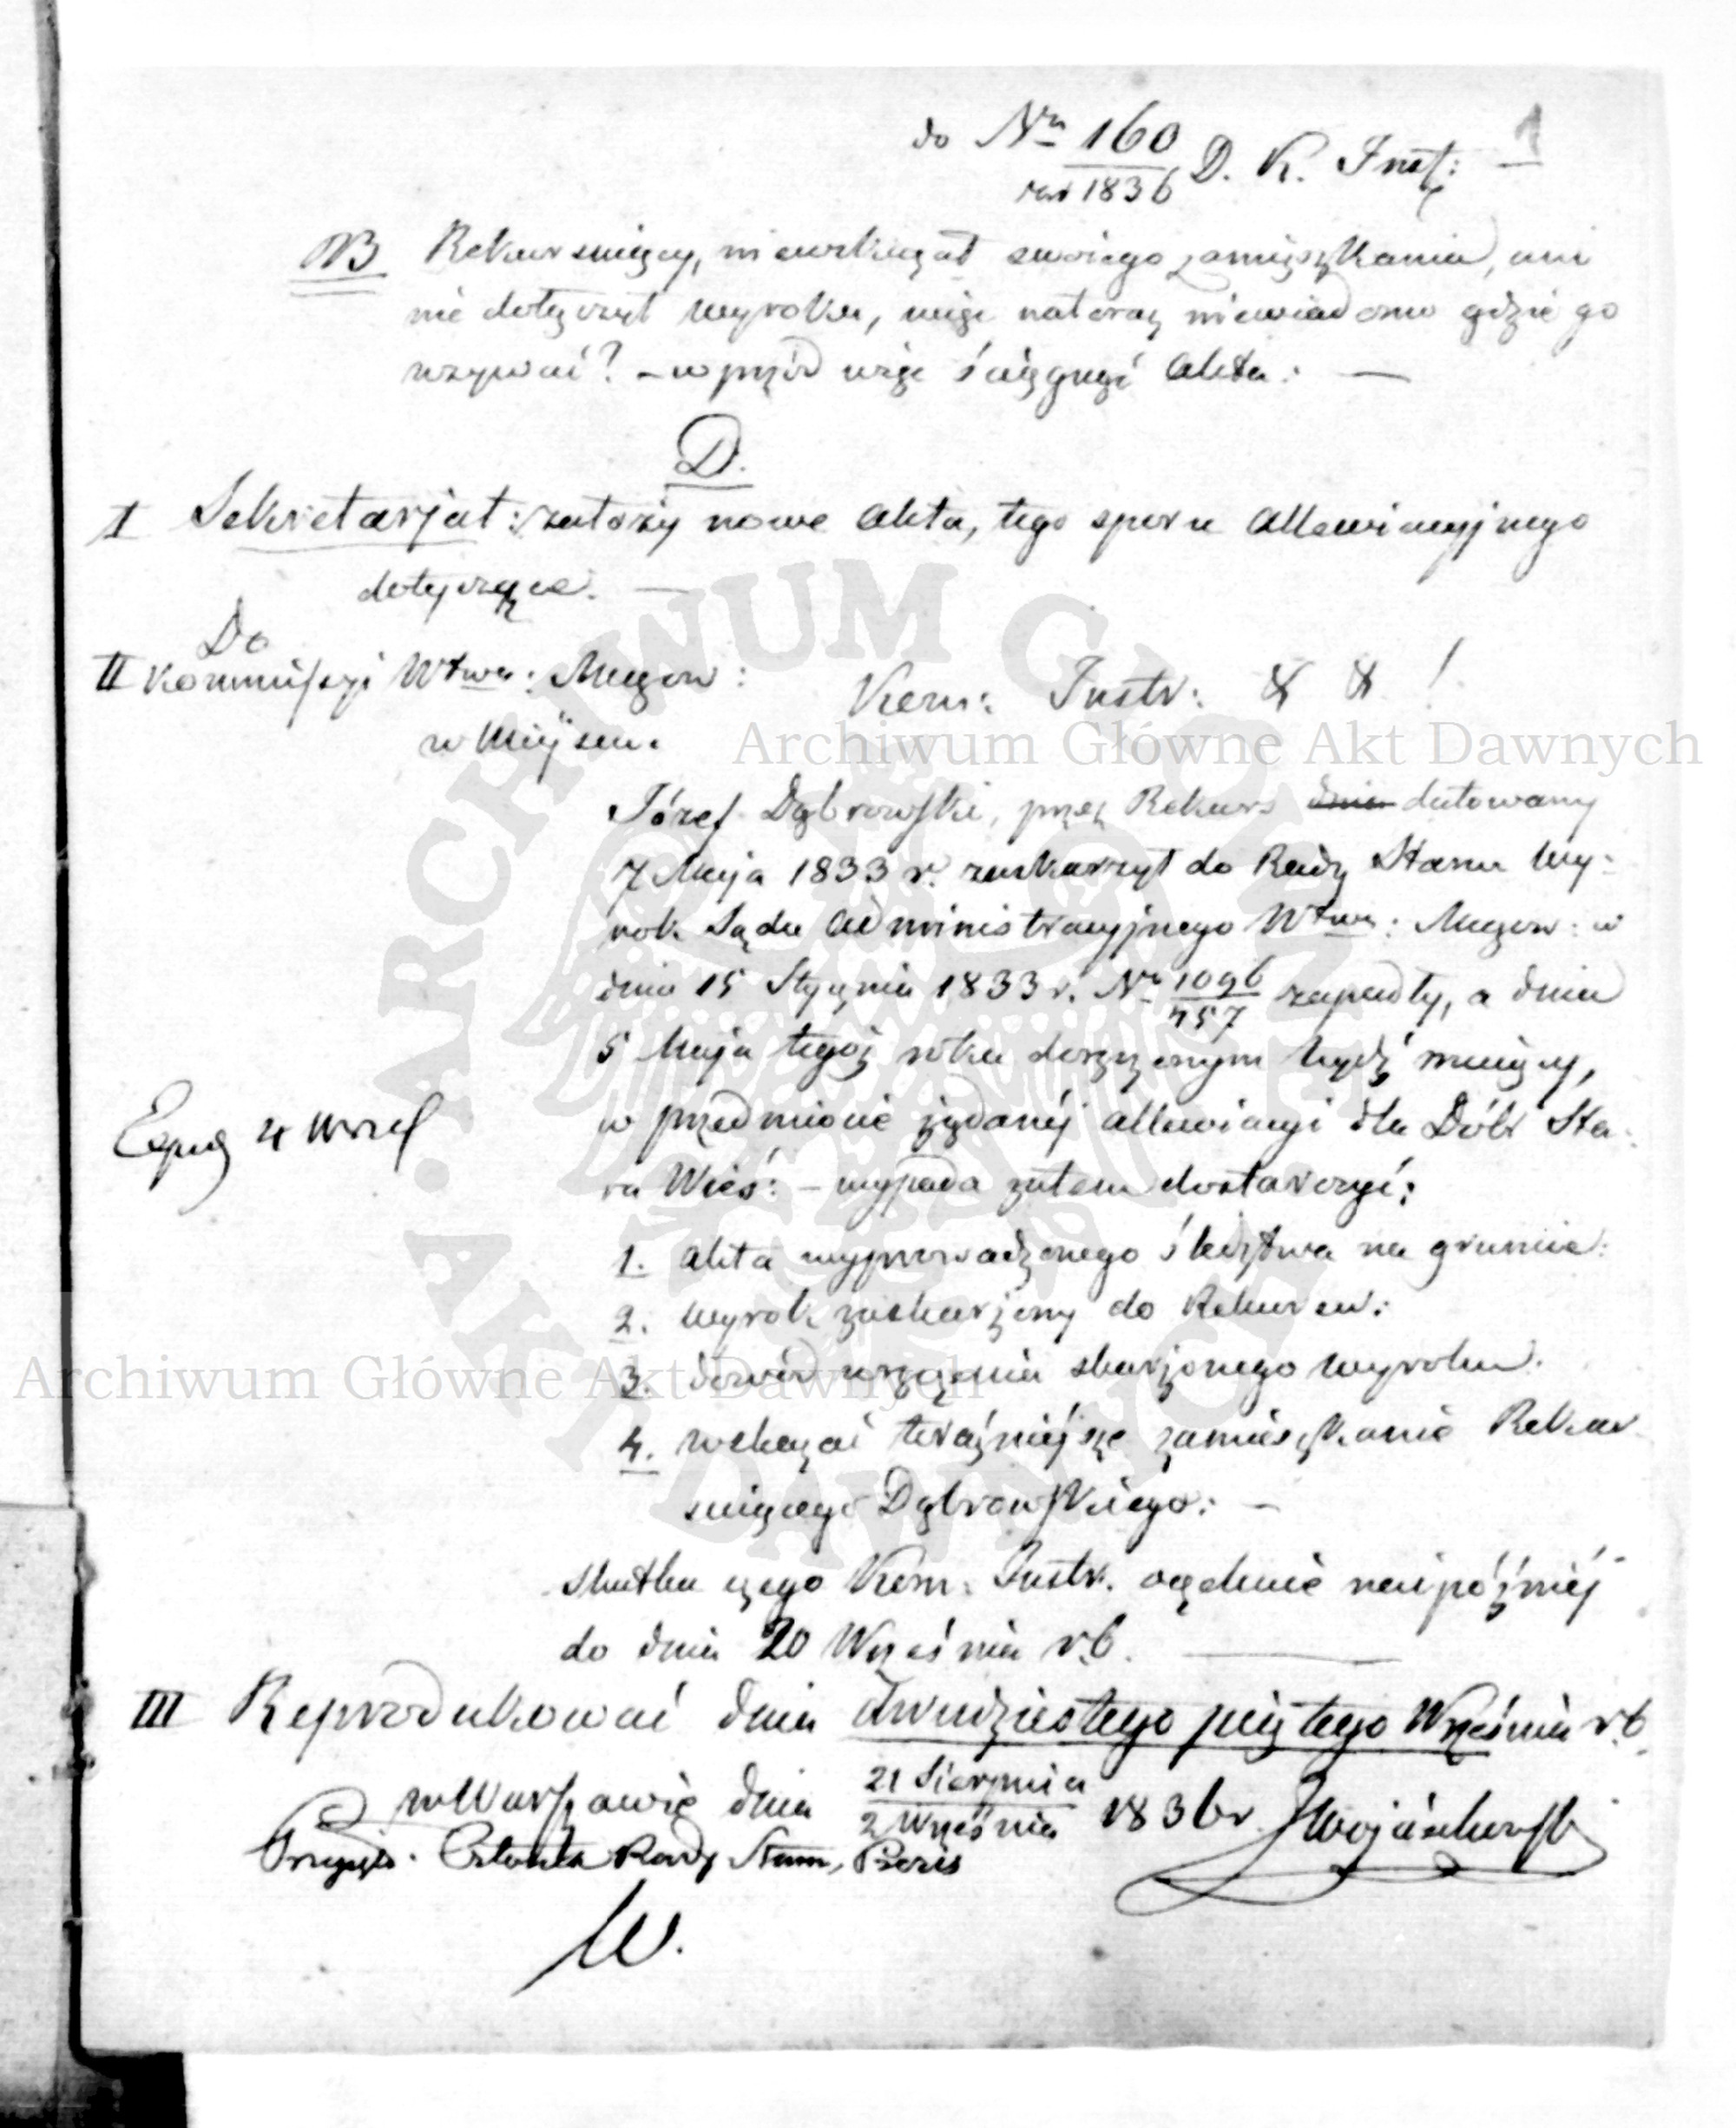 do Nr 160 D. K. Inst: 1
rok 1836
NB Rekursuiący, niewskazał swoiego zamięszkania, ani
nie dołączył wyroku, więc nateraz niewiadomo gdzie go
wzywać? – w przód więc ściągnąć akta: —
D.
I Sekretarjat: założy nowe akta, tego sporu allewiacyjnego
dotyczące. —
Do
II Kommissyi Wtwa: Mazow: Kom: Instr: & & !
w Mieyscu.
Józef Dąbrowski, przez Rekurs dnia datowany
7 Maja 1833 r. zaskarzył do Rady Stanu Wy-
rok Sądu administracyjnego Wtwa: Mazow: w
dniu 15 Stycznia 1833 r. Nr 1096/457 zapadły, a dnia
5 Maja tegoż roku doręczonym bydź maiący,
w przedmiocie żądanéj allewiacyi dla Dóbr Sta-
ra Wieś: – wypada zatem dostarczyć:
1. akta wyprowadzonego śledztwa na gruncie:
2. wyrok zaskarżony do Rekursu:
3. dowód wręczenia skarżonego wyroku.
4. wskazać teraźniéjsze zamieszkanie Rekur
suiącego Dąbrowskiego: —
Skutku czego Kom: Instr. oczekuie naipóźniéj
do dnia 20 Września r.b. —
Exped 4 Wrześ
III Reprodukować dnia dwudziestego piątego Września r.b.
w Warszawie dnia 21 Sierpnia / 2 Września 1836 r. Woyciechowski
Członka Rady Stanu, Prezes
W.
Archiwum Główne Akt Dawnych
Archiwum Główne Akt Dawnych
ARCHIWUM GŁÓWNE AKT DAWNYCH